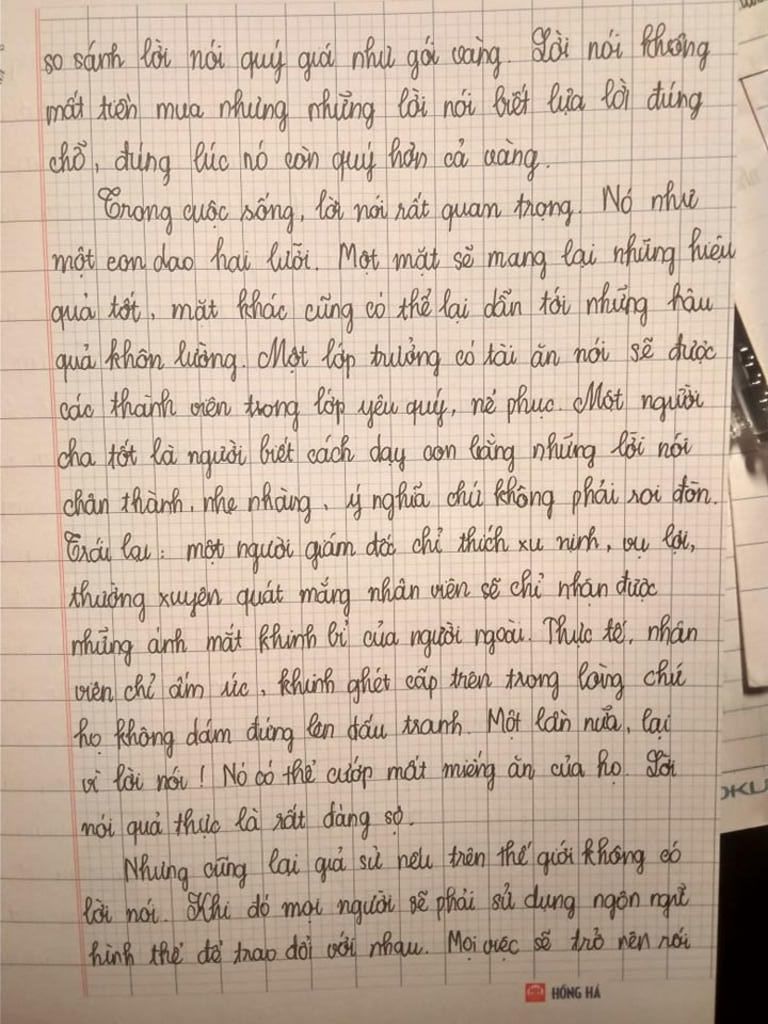 so sánh lời nói quý giá như gói vàng. Lời nói không
mất tiền mua nhưng những lời nói biết lựa lời đúng
chỗ, đúng lúc nó còn quý hơn cả vàng.
Trong cuộc sống, lời nói rất quan trọng. Nó như
một con dao hai lưỡi. Một mặt sẽ mang lại những hiệu
quả tốt, mặt khác cũng có thể lại dẫn tới những hậu
quả khôn lường. Một lớp trưởng có tài ăn nói sẽ được
các thành viên trong lớp yêu quý, nể phục. Một người
cha tốt là người biết cách dạy con bằng những lời nói
chân thành, nhẹ nhàng, ý nghĩa chứ không phải roi đòn.
Trái lại: một người giám đốc chỉ thích xu nịnh, vụ lợi,
thường xuyên quát mắng nhân viên sẽ chỉ nhận được
những ánh mắt khinh bỉ của người ngoài. Thực tế, nhân
viên chỉ ấm ức, khinh ghét cấp trên trong lòng chứ
họ không dám đứng lên đấu tranh. Một lần nữa, lại
vì lời nói! Nó có thể cướp mất miếng ăn của họ. Lời
nói quả thực là rất đáng sợ.
Nhưng cũng lại giả sử nếu trên thế giới không có
lời nói. Khi đó mọi người sẽ phải sử dụng ngôn ngữ
hình thể để trao đổi với nhau. Mọi việc sẽ trở nên rối
HỒNG HÀ